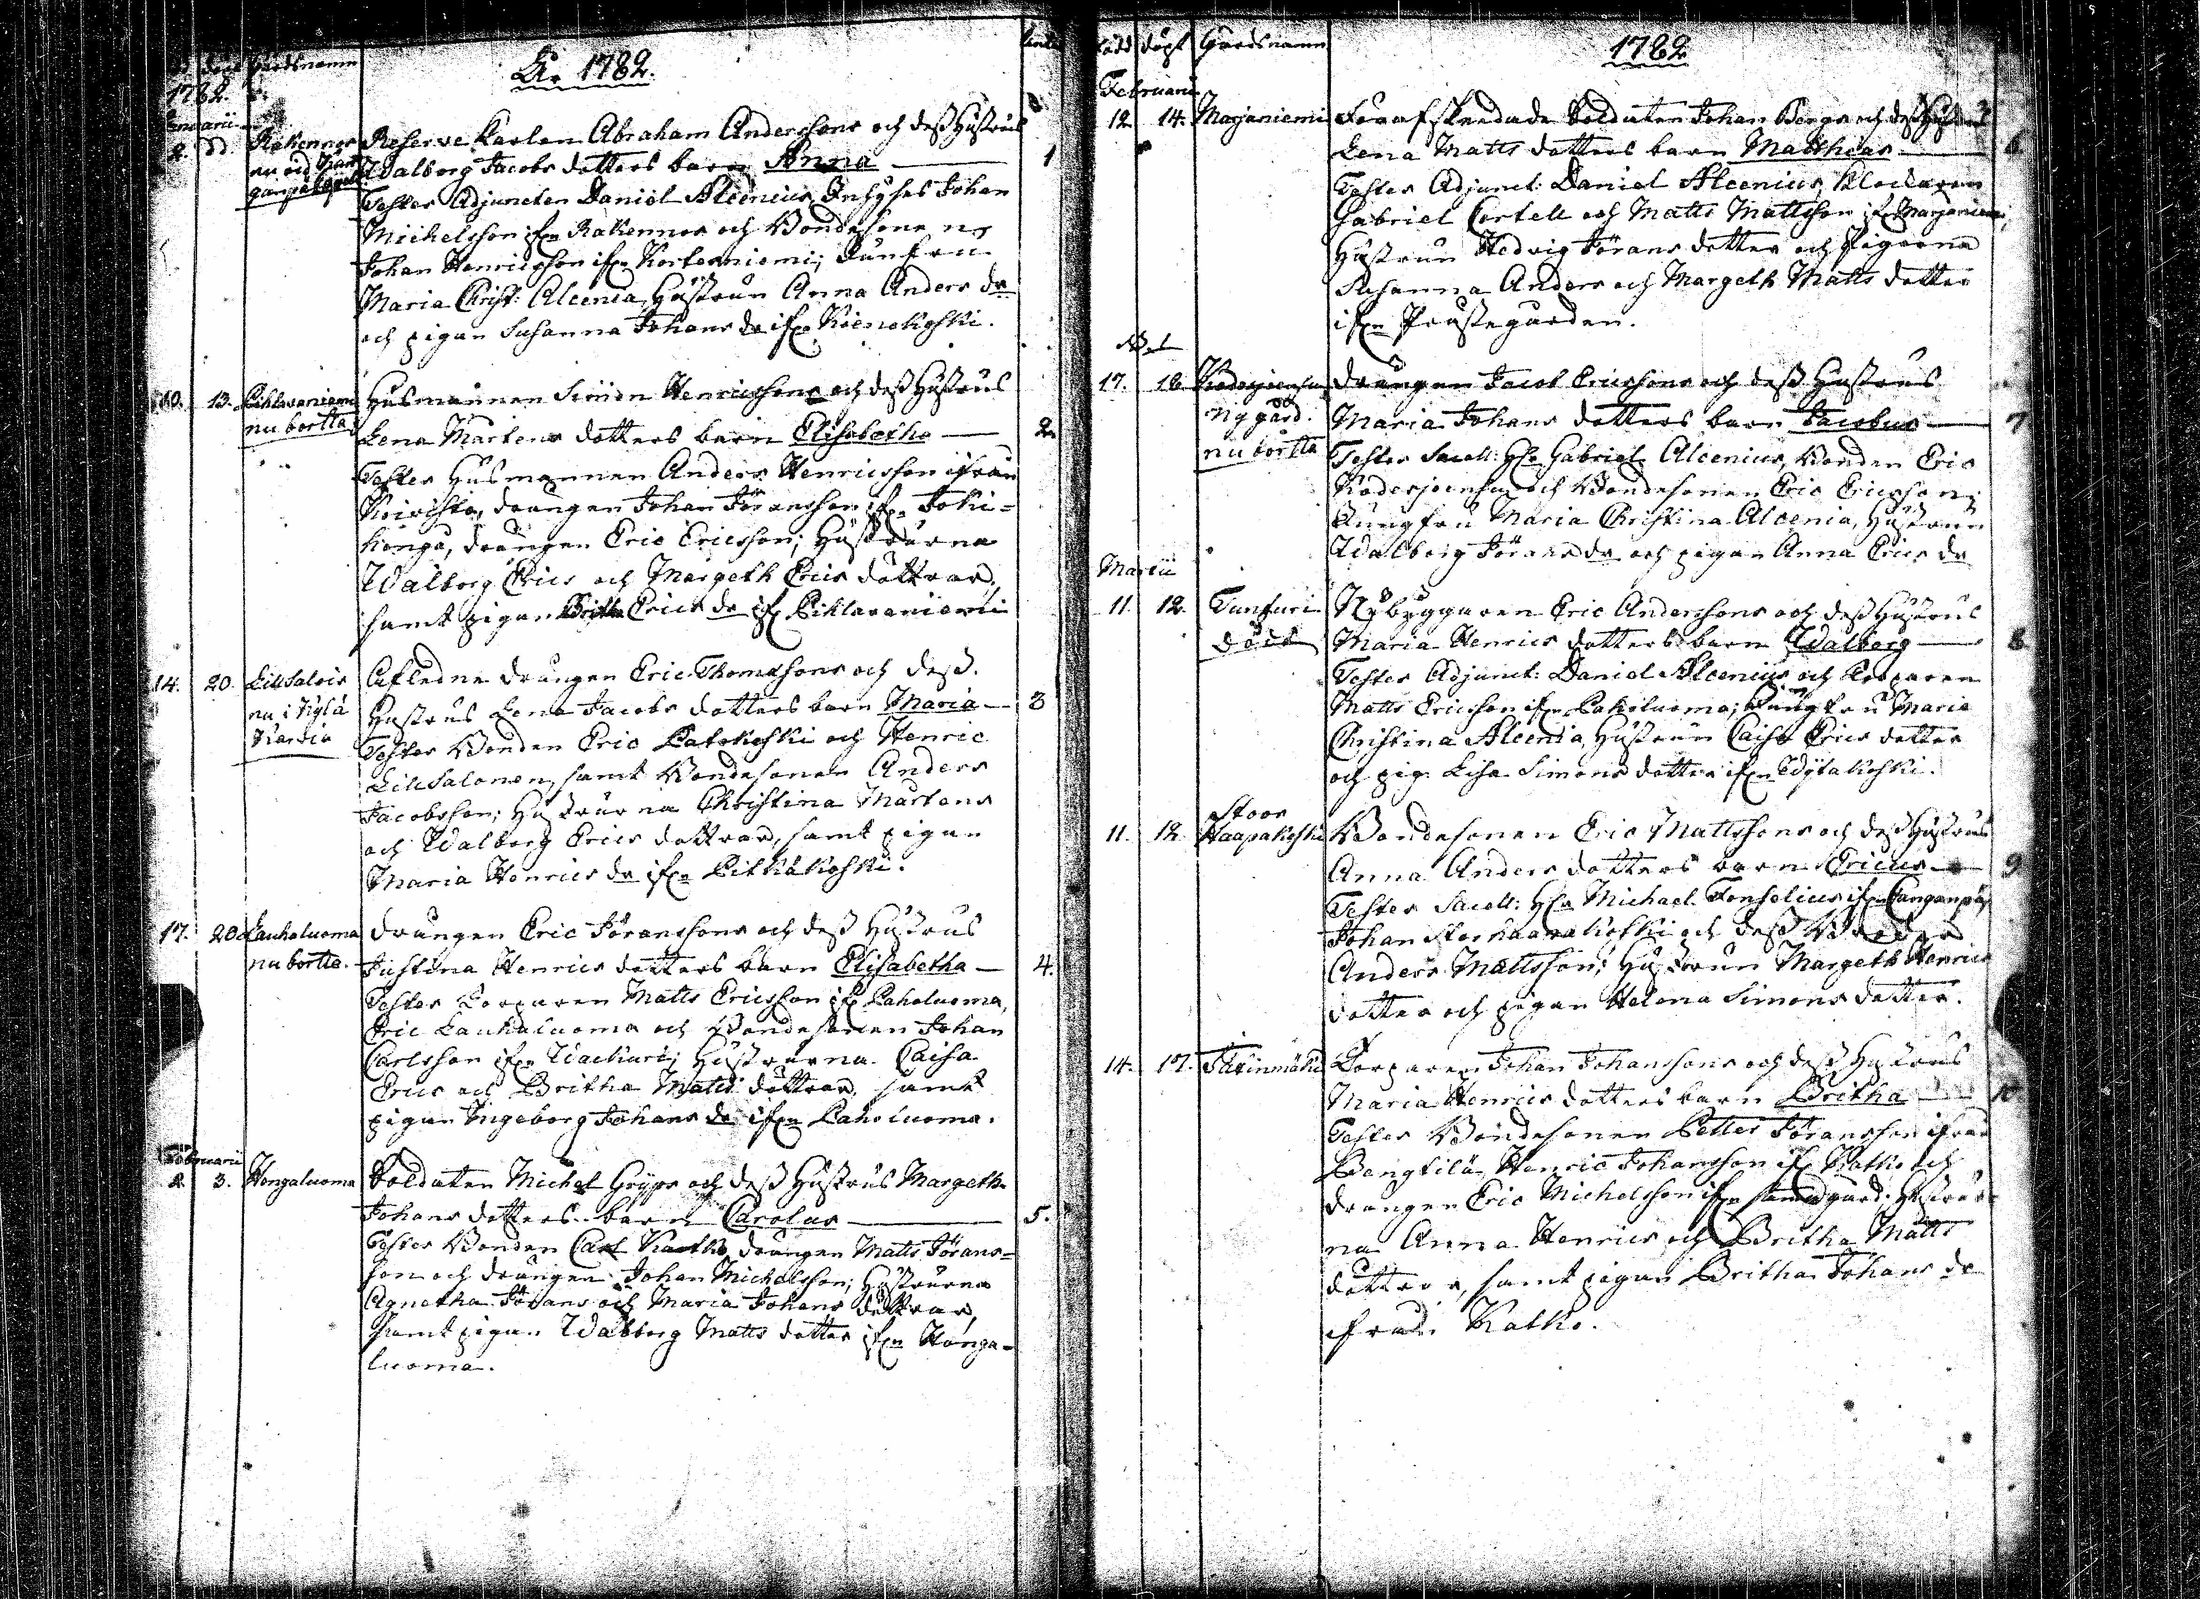 döpt Gårdsnamn
År 1782.
1782.
Januarii
2. Rakennos Reserve Karlen Abraham Anderssons och dess Hustrus
Walborg Jacobs dotters barn Anna — 1
Testes Adjuncten Daniel Alcenius, Inhyses Johan
Michelsson ifrån Rakennos och Bondesone n
Johan Henricsson ifrån Kortesniemi; Jungfru
Maria Christ: Alcenia, Hustrun Anna Anders dr
och pigan Susanna Johans dr ifrån
10. 13. nu bortta Husmannen Simon Henricssons och dess Hustrus
Lena Mårtens dotters barn Elisabetha — 2
Testes Husmannen Anders Henricsson ifrån
drängen Johan Jöransson ifrån Joki=
kånga, drängen Eric Ericsson; Hustrurna
Walborg Erics och Margeth Erics döttrar,
samt pigan Britha Erics dr ifrån Pihlavaniemi
14. 20. Lillsalois Afledne drängen Eric Thomassons och dess
nu i Kylä Hustrus Lena Jacobs dotters barn Maria — 3
Testes Bonden Eric och Henric
Lillsalonen, samt Bondesonen Anders
Jacobsson; Hustrurna Christina Mårtens
och Walborg Erics döttrar, samt pigan
Maria Henrics dr ifrån Pitkäkoski.
17. 20 Lauhaluoma drängen Eric Jöranssons och dess Hustrus
nu bortta. Justina Henrics dotters barn Elisabetha — 4.
Testes Torparen Matts Ericsson ifrån Paholuoma,
Eric Lauhaluoma och Bondesonen Johan
Carlsson ifrån Hustrurna Caisa
Erics och Britha Matts döttrar, samt
pigan Ingeborg Johans dr ifrån Paholuoma.
Februarii
2. 3. Hongaluoma Soldaten Michel Gryps och dess Hustrus Margeth
Johans dotters barn Carolus — 5.
Testes Bonden Carl drängen Matts Jörans=
son och drängen Johan Michelsson; Hustrurna
Agnetha Jörans och Maria Johans döttrar,
samt pigan Walborg Matts dotter ifrån Honga=
luoma.
född döpt Gårdsnamn
1782
Februarii
12 14. Marjaniemi Förafskedade Soldaten Johan Bergs och dess Hustrus
Lena Matts dotters barn Matthias — 6
Testes Adjunct: Daniel Alcenius, Klockaren
Gabriel Cortell och Matts Mattsson ifrån Marjaniemi;
Hustrun Hedvig Jörans dotter och Pigorna
Susanna Anders och Margeth Matts dotter
ifrån Prästegården.
17. 18 drängen Jacob Ericssons och dess Hustrus
nygård. Maria Johans dotters barn Jacobus — 7
nu bortta Testes Sacell: Gabriel Alcenius, Bonden Eric
och Bondesonen Eric Ericsson;
Jungfru Maria Christina Alcenia, Hustrun
Walborg Jörans dr och pigan Anna Erics dr
Martii
11. 12. Tunturi Nybyggaren Eric Anderssons och dess Hustrus
död Maria Henrics dotters barn Walborg — 8
Testes Adjunct: Daniel Alcenius och Torparen
Matts Ericsson ifrån Pakiluoma; Jungfru Maria
Christina Alcenia, Hustrun Caisa Erics dotter
och pig: Lisa Simons dotter ifrån
Stoor
11. 12. Haapakoski Bondesonen Eric Mattssons och dess Hustrus
Anna Anders dotters barn Ericus — 9
Testes Sacell: Michael Fonselius ifrån
Johan Storhaapakoski och dess Broder
Anders Mattsson; Hustrun Margeth Henrics
dotter och pigan Helena Simons dotter.
14. 17. Torparen Johan Johanssons och dess Hustrus
Maria Henrics dotters barn Britha — 10
Testes Bondesonen Petter Jöransson ifrån
Bengtilä, Henric Johansson ifrån Katko och
drängen Eric Michelsson ifrån Hustrur=
na Anna Henrics och Britha Matts
döttrar, samt pigan Britha Johans dr
ifrån Katko.